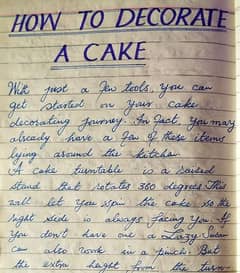 HOW TO DECORATE
A CAKE
With just a few tools, you can
get started on your cake
decorating journey. In fact, you may
already have a few of these items
lying around the kitchen
A cake turntable is a raised
stand that rotates 360 degrees This
will let you spin the cake so the
right side is always facing you. If
you don't have one a Lazy Susan
can also work in a pinch. But
the extra height from the turn